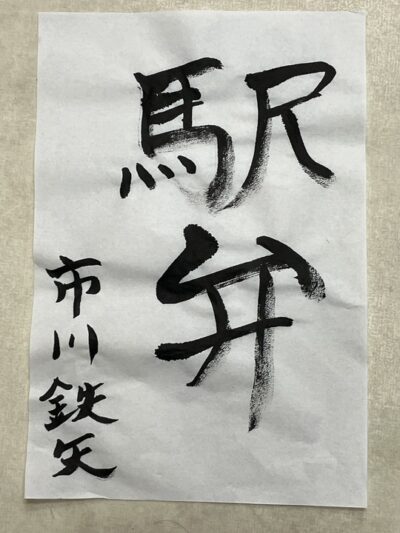 駅弁
市川鉄矢